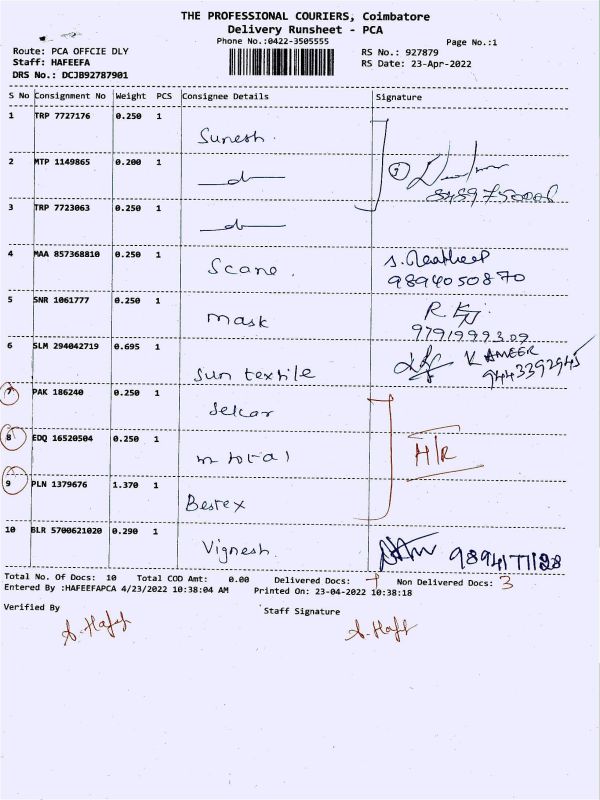 THE PROFESSIONAL COURIERS, Coimbatore
Delivery Runsheet - PCA
Phone No.:0422-3505555
Page No.:1
Route: PCA OFFCIE DLY
RS No.: 927879
Staff: HAFEEFA
RS Date: 23-Apr-2022
DRS No.: DCJB92787901
S No Consignment No Weight PCS Consignee Details Signature
1 TRP 7727176 0.250 1
Suresh.
2 MTP 1149865 0.200 1
3 TRP 7723063 0.250 1
4 MAA 857368810 0.250 1
Scane.
9894050870
5 SNR 1061777 0.250 1
mask
9791999309
6 SLM 294042719 0.695 1
K AMEER
9443392945
Sun textile
7 PAK 186240 0.250 1
Selkar
8 EDQ 16520504 0.250 1
H/R
9 PLN 1379676 1.370 1
Bestex
10 BLR 5700621020 0.290 1
Vignesh.
9894171128
Total No. Of Docs: 10 Total COD Amt: 0.00 Delivered Docs: 7 Non Delivered Docs: 3
Entered By :HAFEEFAPCA 4/23/2022 10:38:04 AM Printed On: 23-04-2022 10:38:18
Verified By Staff Signature